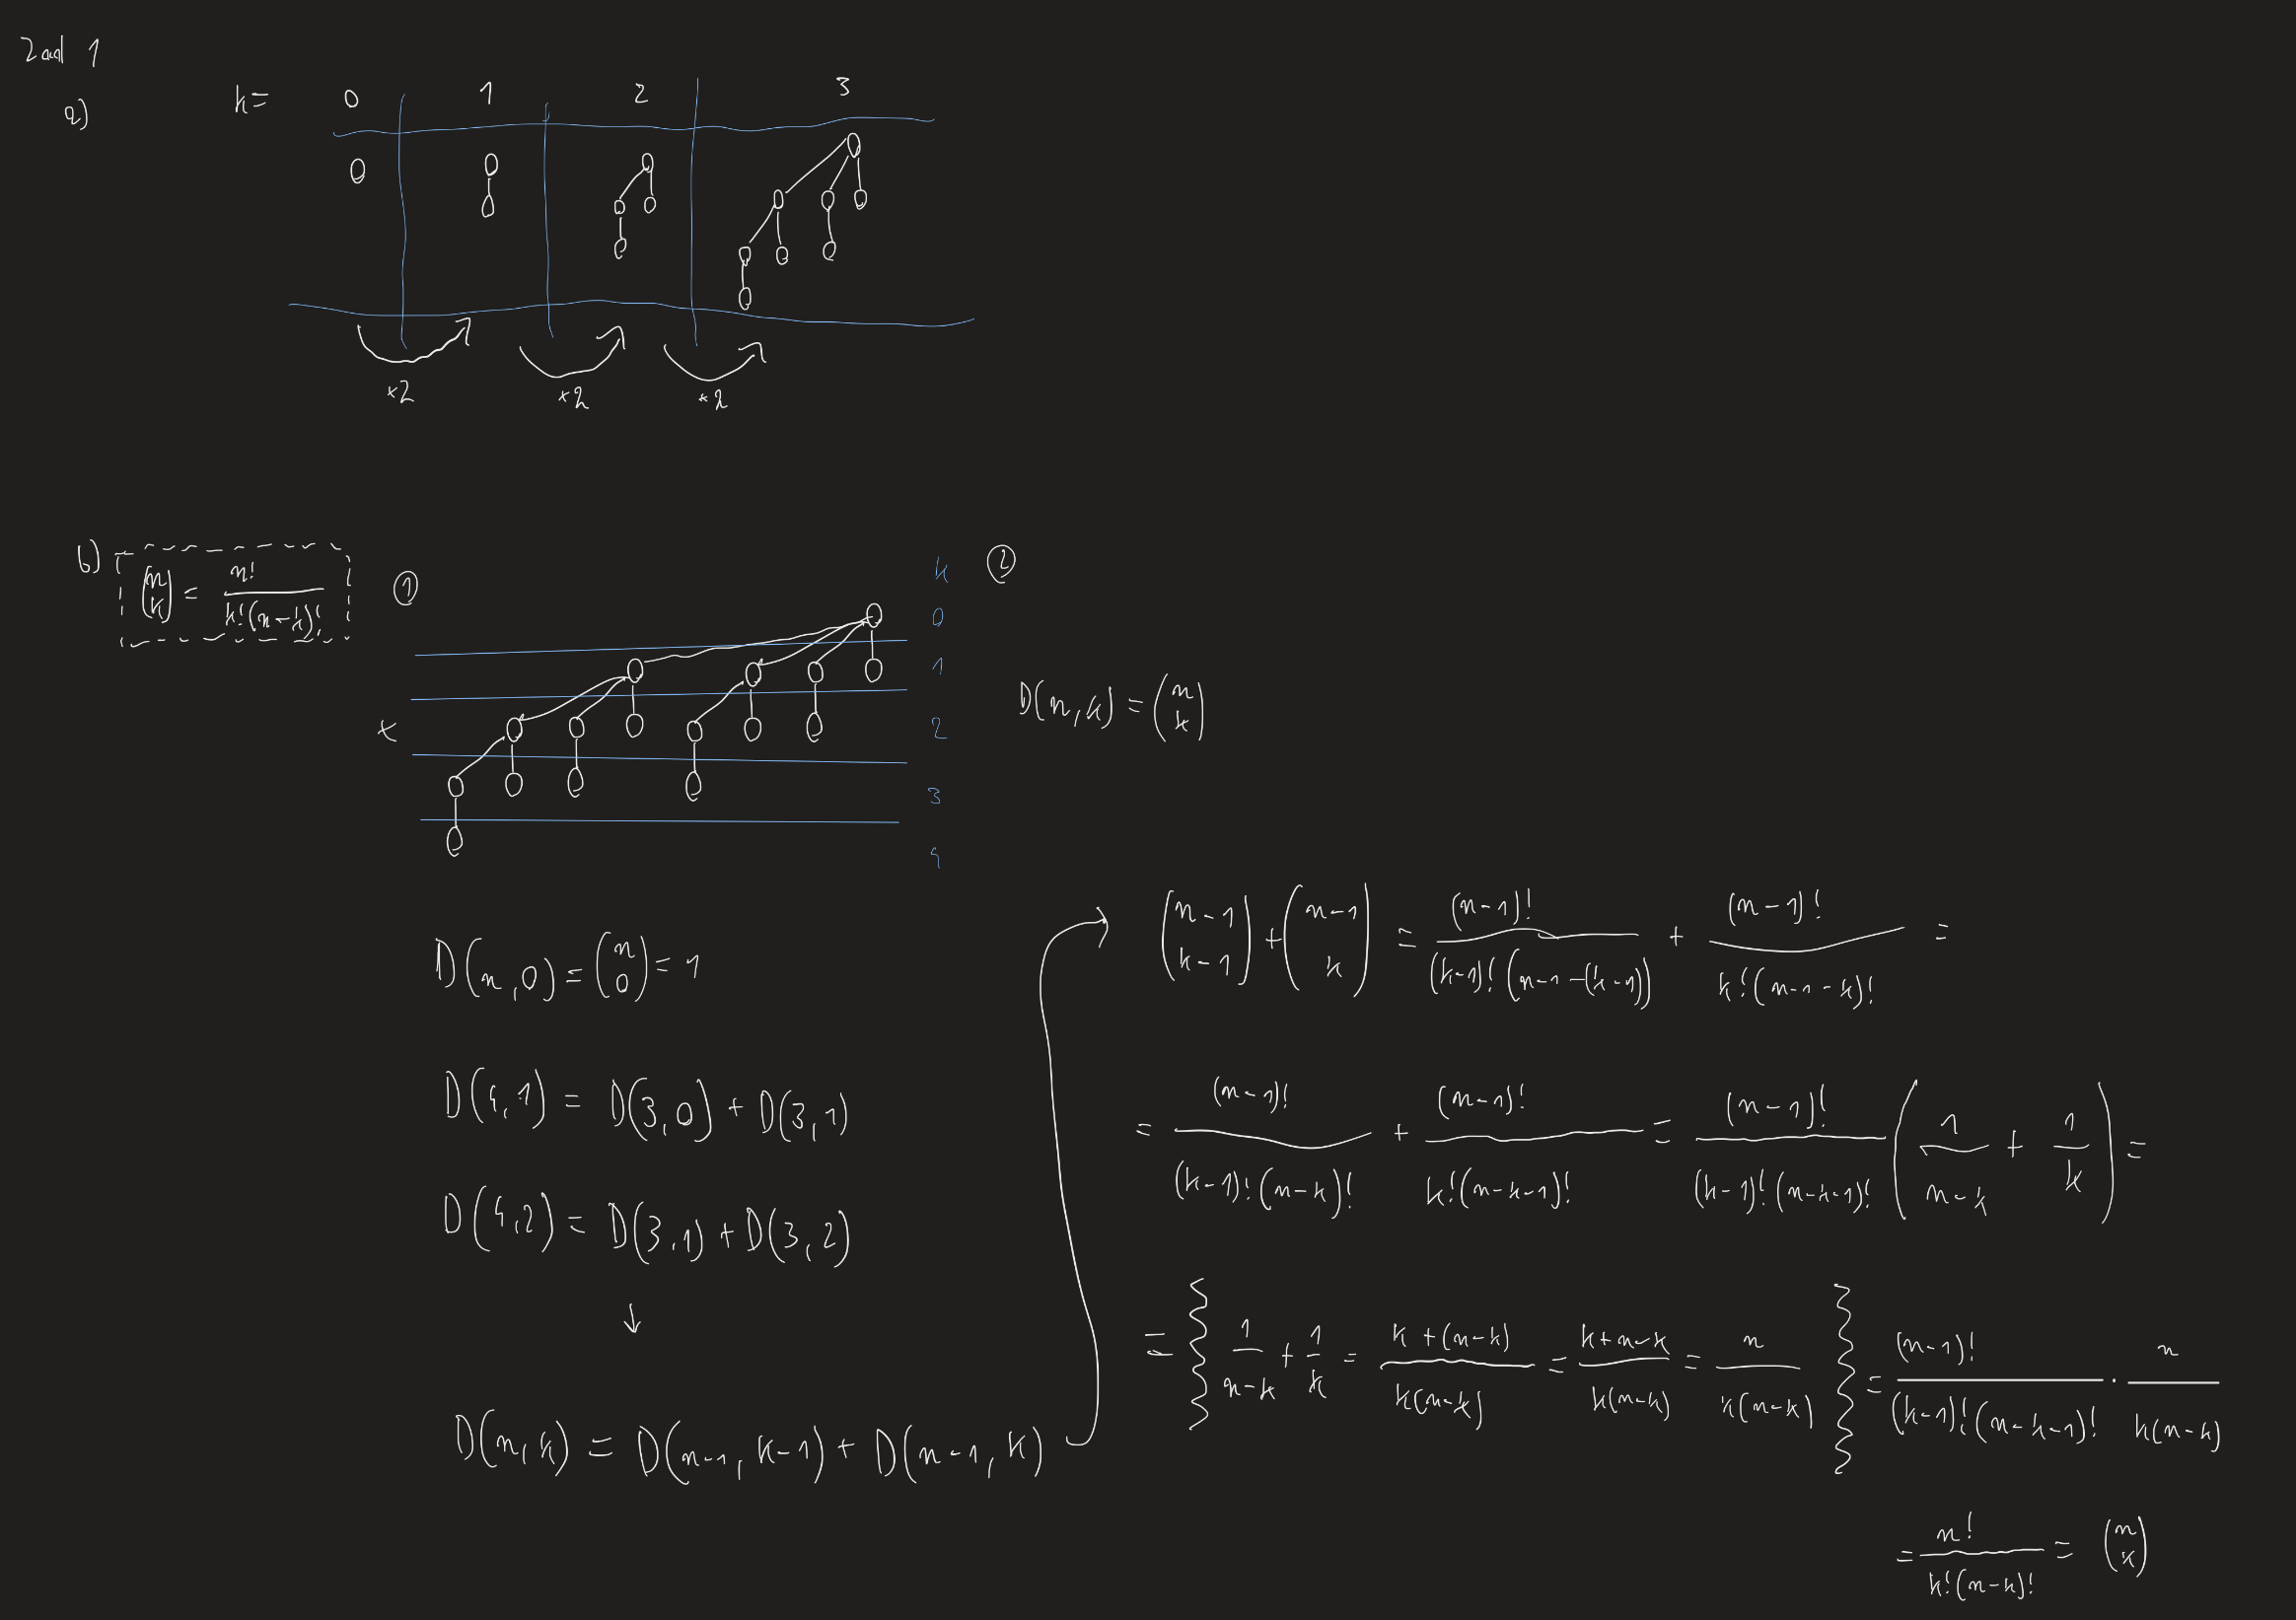 Zad 1
a)
k= 0 1 2 3
*2 *2 *2
b)
(n k) = n! / k!(n-k)!
①
k
0
1
2
3
4
②
D(n,k) = (n k)
D(n,0) = (n 0) = 1
D(4,1) = D(3,0) + D(3,1)
D(4,2) = D(3,1) + D(3,2)
↓
D(n,k) = D(n-1,k-1) + D(n-1,k)
(n-1 k-1) + (n-1 k) = (n-1)! / (k-1)!(n-1-(k-1)) + (n-1)! / k!(n-1-k)! =
= (n-1)! / (k-1)!(n-k)! + (n-1)! / k!(n-k-1)! = (n-1)! / (k-1)!(n-k-1)! (1 / n-k + 1 / k) =
= { 1 / n-k + 1 / k = k+(n-k) / k(n-k) = k+n-k / k(n-k) = n / k(n-k) } = (n-1)! / (k-1)!(n-k-1)! · n / k(n-k)
= n! / k!(n-k)! = (n k)